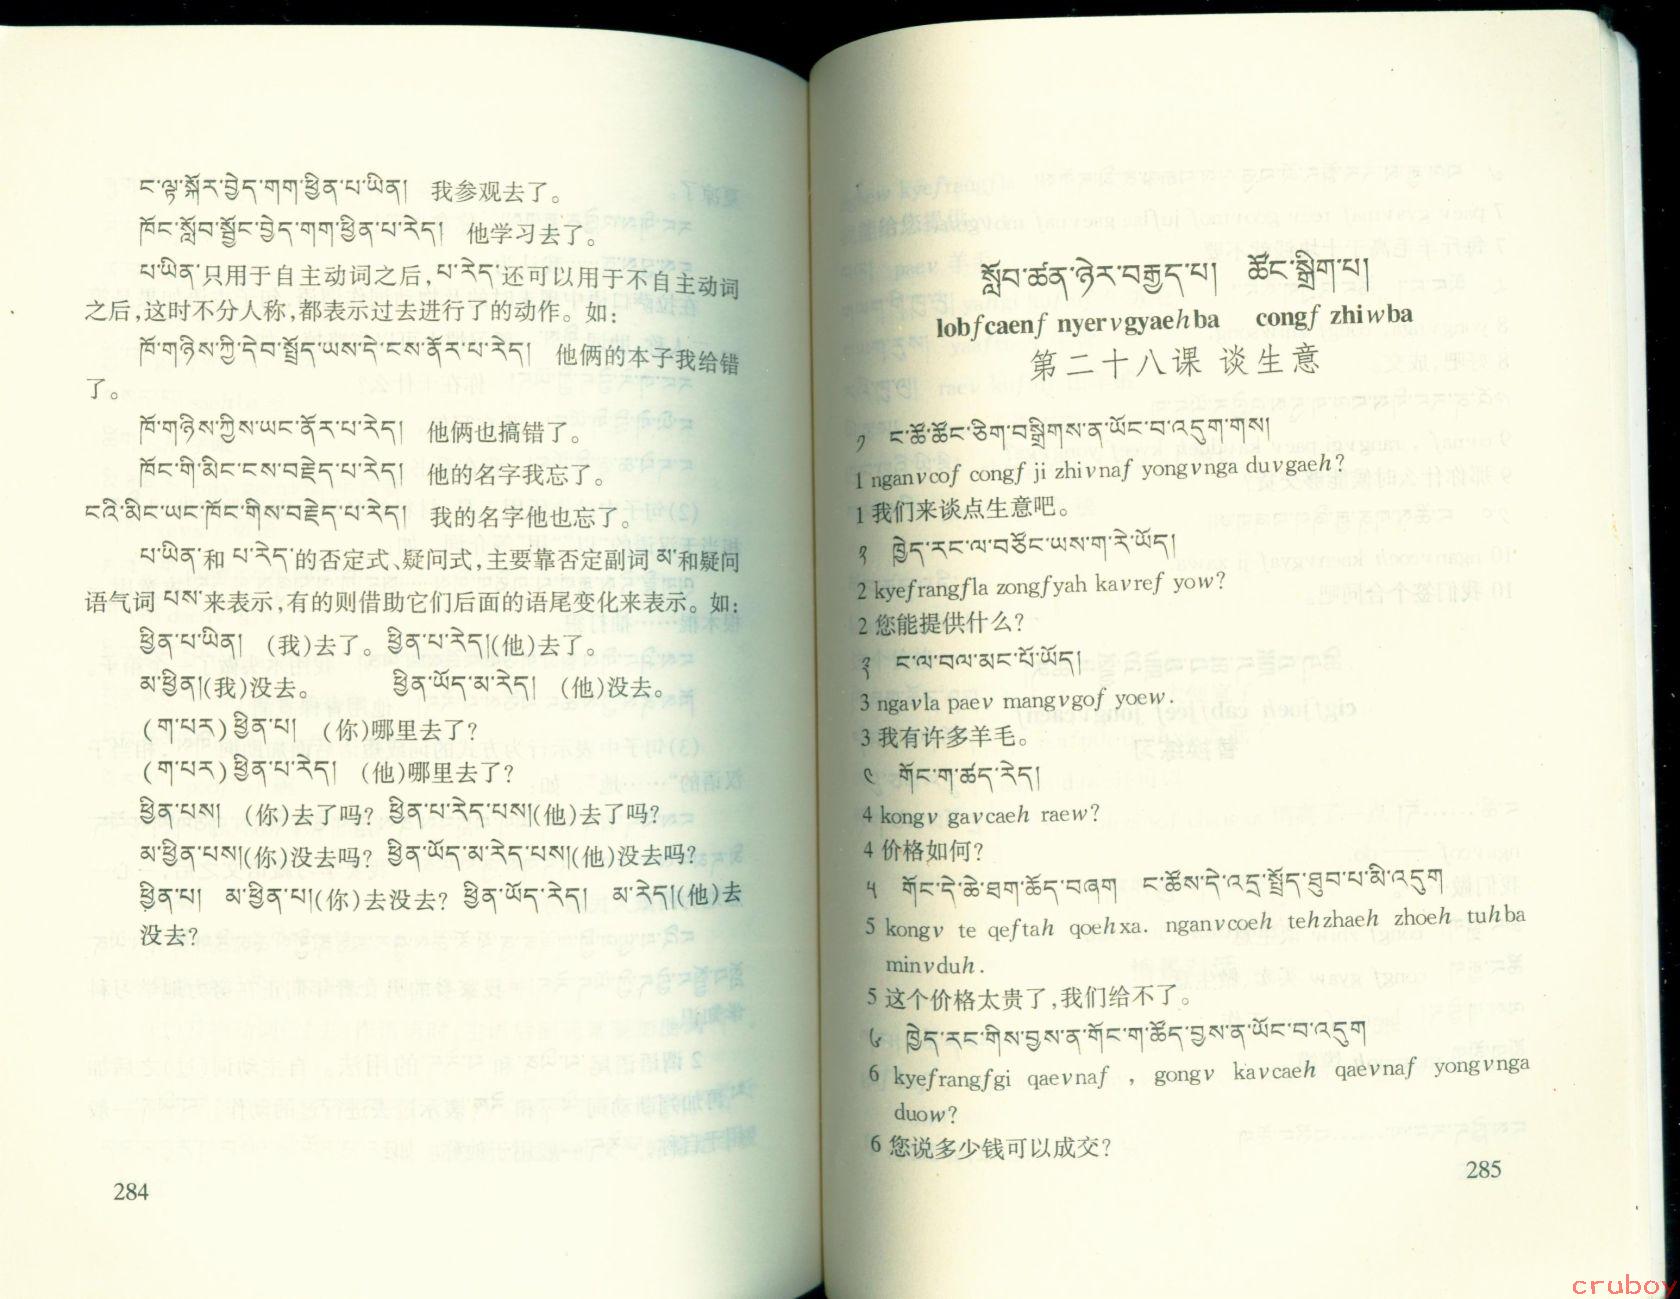 ང་ལྟ་སྐོར་བྱེད་གག་ཕྱིན་པ་ཡིན། 我参观去了。
ཁོང་སློབ་སྦྱོང་བྱེད་གག་ཕྱིན་པ་རེད། 他学习去了。
པ་ཡིན་只用于自主动词之后,པ་རེད་还可以用于不自主动词
之后,这时不分人称,都表示过去进行了的动作。如:
ཁོ་གཉིས་ཀྱི་དེབ་སྤྲོད་ཡས་དེ་ངས་ནོར་པ་རེད། 他俩的本子我给错
了。
ཁོ་གཉིས་ཀྱིས་ཡང་ནོར་པ་རེད། 他俩也搞错了。
ཁོང་གི་མིང་ངས་བརྗེད་པ་རེད། 他的名字我忘了。
ངའི་མིང་ཡང་ཁོང་གིས་བརྗེད་པ་རེད། 我的名字他也忘了。
པ་ཡིན་和 པ་རེད་的否定式、疑问式,主要靠否定副词 མ་和疑问
语气词 པས་来表示,有的则借助它们后面的语尾变化来表示。如:
ཕྱིན་པ་ཡིན། (我)去了。 ཕྱིན་པ་རེད།(他)去了。
མ་ཕྱིན།(我)没去。 ཕྱིན་ཡོད་མ་རེད། (他)没去。
(ག་པར)ཕྱིན་པ། (你)哪里去了?
(ག་པར)ཕྱིན་པ་རེད། (他)哪里去了?
ཕྱིན་པས། (你)去了吗? ཕྱིན་པ་རེད་པས།(他)去了吗?
མ་ཕྱིན་པས།(你)没去吗? ཕྱིན་ཡོད་མ་རེད་པས།(他)没去吗?
ཕྱིན་པ། མ་ཕྱིན་པ།(你)去没去? ཕྱིན་ཡོད་རེད། མ་རེད།(他)去
没去?
284
སློབ་ཚན་ཉེར་བརྒྱད་པ། ཚོང་སྒྲིག་པ།
lobfcaenf nyervgyaehba congf zhiwba
第二十八课 谈生意
༡ ང་ཚོ་ཚོང་ཅིག་བསྒྲིགས་ན་ཡོང་བ་འདུག་གས།
1 nganvcof congf ji zhivnaf yongvnga duvgaeh?
1 我们来谈点生意吧。
༢ ཁྱེད་རང་ལ་བཙོང་ཡས་ག་རེ་ཡོད།
2 kyefrangfla zongfyah kavref yow?
2 您能提供什么?
༣ ང་ལ་བལ་མང་པོ་ཡོད།
3 ngavla paev mangvgof yoew.
3 我有许多羊毛。
༤ གོང་ག་ཚད་རེད།
4 kongv gavcaeh raew?
4 价格如何?
༥ གོང་དེ་ཆེ་ཐག་ཆོད་བཞག ང་ཚོས་དེ་འདྲ་སྤྲོད་ཐུབ་པ་མི་འདུག
5 kongv te qeftah qoehxa. nganvcoeh tehzhaeh zhoeh tuhba
minvduh.
5 这个价格太贵了,我们给不了。
༦ ཁྱེད་རང་གིས་བྱས་ན་གོང་ག་ཚོད་བྱས་ན་ཡོང་བ་འདུག
6 kyefrangfgi qaevnaf , gongv kavcaeh qaevnaf yongvnga
duow?
6 您说多少钱可以成交?
285
cruboy